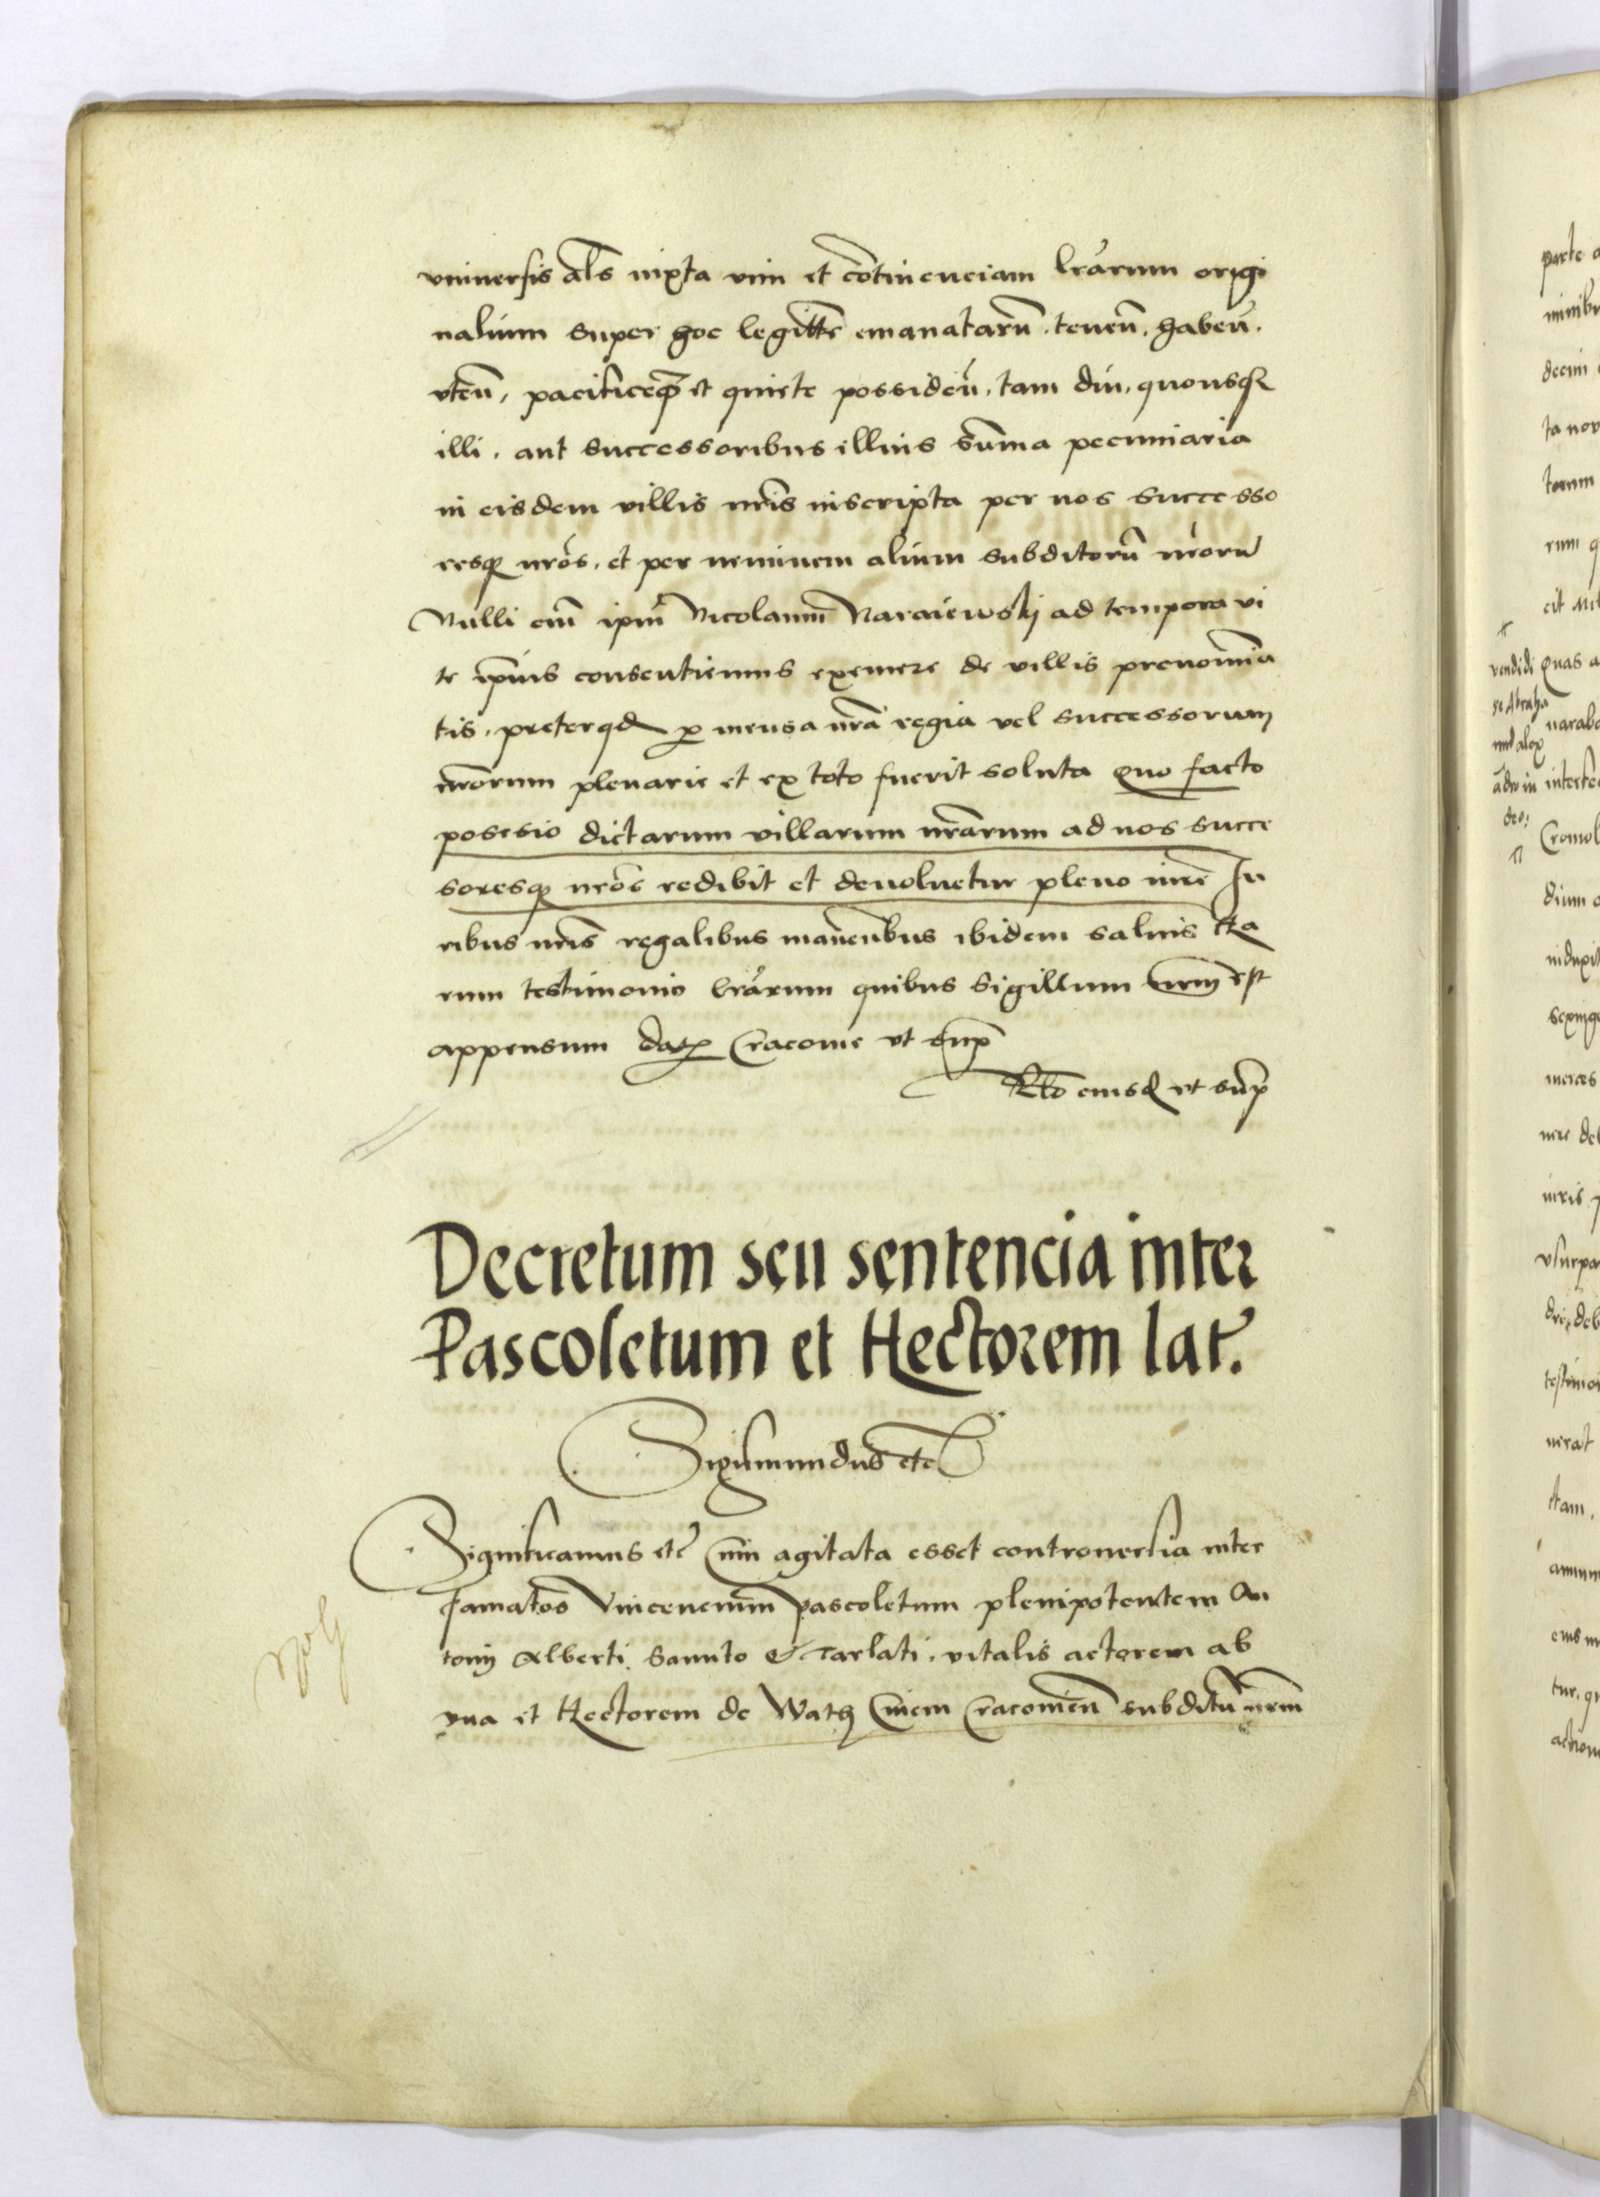 vniuersis als iuxta vim et continenciam lrarum origi
nalium super hoc legittime emanatarum. tenen. haben.
vten. pacificeque et quiete possiden. tam diu. quousque
illi. aut successoribus illius summa pecuniaria
in eisdem villis nris inscripta per nos successo
resque nros. et per neminem alium subditorum nrorum
Nulli enim ipm Nicolaum Naraiewskij ad tempora vi
te ipius consentiemus exemere de villis prenomina
tis. preterquam per mensa nra regia vel successorum
nrorum plenarie et ex toto fuerit soluta Quo facto
posesio dictarum villarum nrarum ad nos succe
soresque nros redibit et deuoluetur pleno iure Iu
ribus nris regalibus manentibus ibidem saluis Ha
rum testimonio lrarum quibus Sigillum nrm est
appensum Dat Cracouie vt supra
Rlo eiusdem vt supra
Decretum seu sentencia inter
Pascoletum et Hectorem lat.
Sigismundus etc
Significamus etc Cum agitata esset controuersia inter
famatos Vincencium pascoletum plenipotentem An
tonij Alberti Sanuto & Tarlati. vitalis actorem ab
vna et Hectorem de Watz Ciuem Cracouien subditum nrm
parte a
decim
ta nov
torum
rum q
vendidi
quas a
se Abraha
interfe
dium
merces
vsurpa